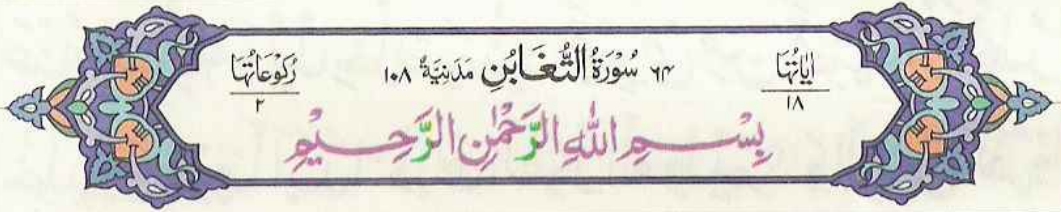 اٰيَاتُهَا ١٨ ٦٤ سُوْرَةُ التَّغَابُنِ مَدَنِيَّةٌ ١٠٨ رُكُوْعَاتُهَا ٢
بِسْمِ اللّٰهِ الرَّحْمٰنِ الرَّحِيْمِ